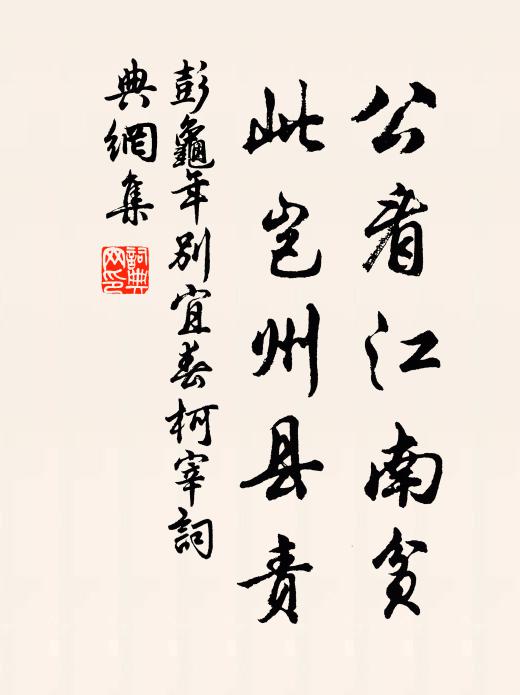 公看江南贫
此岂州县责
彭龜年别宜春柯宰詞
典網集
詞典网印